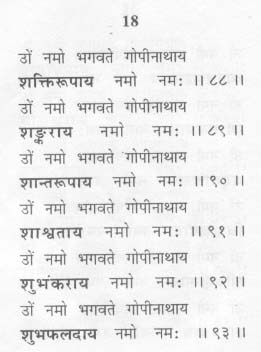 18
उों नमो भगवते गोपीनाथाय
शक्तिरूपाय नमो नमः ॥ ८८ ॥
उों नमो भगवते गोपीनाथाय
शङ्कराय नमो नमः ॥ ८९ ॥
उों नमो भगवते गोपीनाथाय
शान्तरूपाय नमो नमः ॥ ९० ॥
उों नमो भगवते गोपीनाथाय
शाश्वताय नमो नमः ॥ ९१ ॥
उों नमो भगवते गोपीनाथाय
शुभंकराय नमो नमः ॥ ९२ ॥
उों नमो भगवते गोपीनाथाय
शुभफलदाय नमो नमः ॥ ९३ ॥